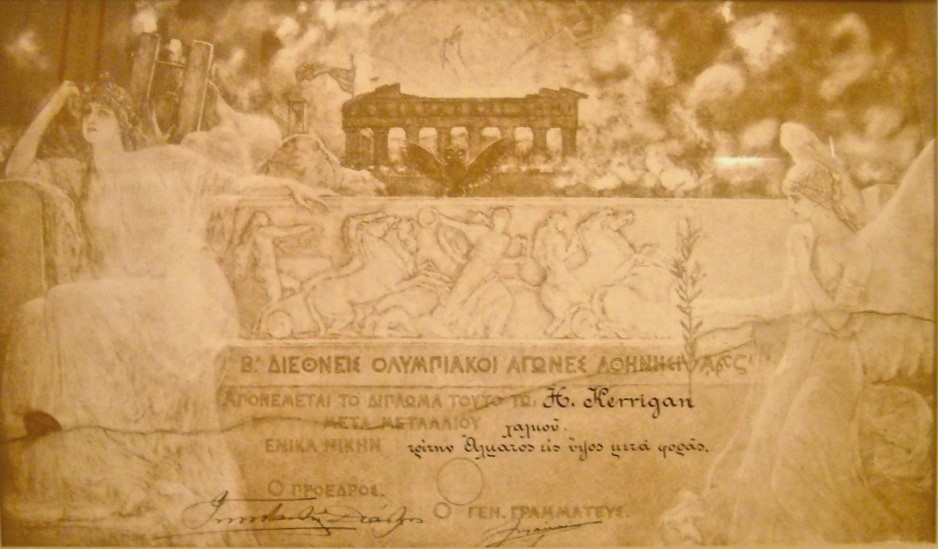 Β.ᴬ ΔΙΕΘΝΕΙΣ ΟΛΥΜΠΙΑΚΟΙ ΑΓΩΝΕΣ ΑΘΗΝΗΣΙ
ΑΠΟΝΕΜΕΤΑΙ ΤΟ ΔΙΠΛΩΜΑ ΤΟΥΤΟ ΤΩι H. Kerrigan
ΜΕΤΑ ΜΕΤΑΛΛΙΟΥ χαλκού.
ΕΝΙΚΑ ΝΙΚΗΝ τρίτην Άλματος εις ύψος μετά φοράς.
Ο ΠΡΟΕΔΡΟΣ.
Ο ΓΕΝ. ΓΡΑΜΜΑΤΕΥΣ.